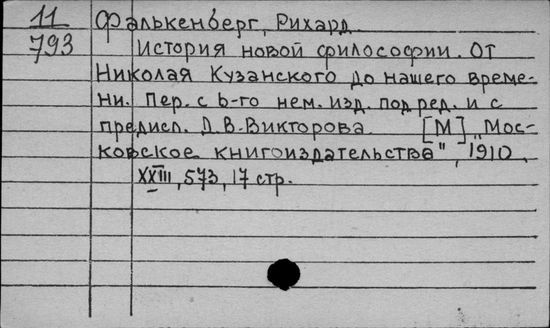 11 Фалькенберг, Рихард
793 История новой философии. От
Николая Кузанского до нашего време-
ни. Пер. с 6-го нем. изд. под ред. и с
предисл. Д.В.Викторова [М] „Мос-
ковское книгоиздательства", 1910,
XXIII, 573, 17 стр.